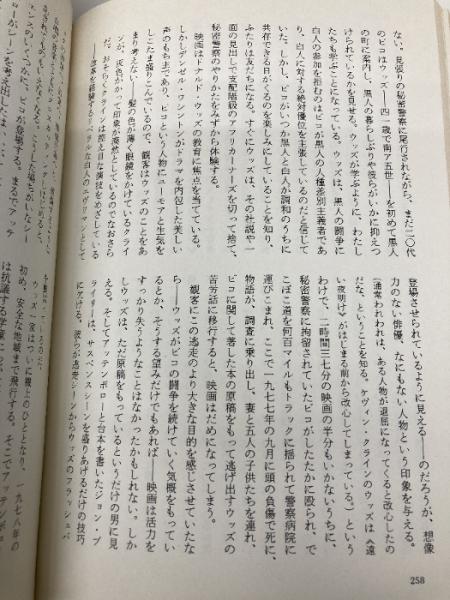 ない。見張りの秘密警察に尾行されながら、まだ二〇代
のビコはウッズ――四一歳で南ア五世――を初めて黒人
の町に案内し、黒人の暮らしぶりや彼らがいかに抑えつ
けられているかを見せる。ウッズが学ぶように、わたし
たちも学ぶことになっている。ウッズは、黒人の闘争に
白人の参加を拒むのはビコが黒人の人種差別主義者であ
り、白人に対する絶対優位を主張しているのだと信じて
いた。しかし、ビコがいつか黒人と白人が調和のうちに
共存できる日がくるのを楽しみにしていることを知り、
ふたりは友だちになる。すぐにウッズは、その社説や一
面の見出しで支配階級のアフリカーナーズを切って捨て、
秘密警察のやりかたをみずから体験する。
映画はドナルド・ウッズの教育に焦点を当てている。
しかしデンゼル・ワシントンがドラマを内包した美しい
声のもち主であり、ビコという人物にユーモアと生気を
しこたま盛りこんでいるので、観客はウッズのことをあ
まり考えない。髪の色が薄く、眼鏡をかけているクライ
ンが、灰色がかって印象が漠然としているのでなおさら
だ。おそらくクラインは控え目な演技をめざしている
――改革を経験するリベラルな白人のエヴリマンとして
登場させられているように見える――のだろうが、想像
力のない俳優、なにもない人物という印象を与える。
(通常われわれは、ある人物が退屈になってくると改心したの
だな、ということを知る。ケヴィン・クラインのウッズは『遠
い夜明け』がはじまる前から改心してしまっている。)という
わけで、二時間三七分の映画の半分もいかないうちに、
秘密警察に拘留されていたビコがしたたかに殴られ、で
こぼこ道を何百マイルもトラックに揺られて警察病院に
運びこまれ、ここで一九七七年の九月に頭の負傷で死に、
物語が、調査に乗り出し、妻と五人の子供たちを連れ、
ビコに関して著した本の原稿をもって逃げ出すウッズの
苦労話に移行すると、映画はだめになってしまう。
観客にこの逃走のより大きな目的を感じさせていたな
ら――ウッズがビコの闘争を続けていく気概をもってい
るとか、そうする望みだけでもあれば――映画は活力を
すっかり失うようなことはなかったかもしれない。しか
しウッズは、ただ原稿をもっているというだけの男に見
える。そしてアッテンボローと台本を書いたジョン・ブ
ライリーは、サスペンスシーンを盛りあげるだけの技巧
に欠ける。彼らが逃走シーンからウッズのフラッシュバ
258